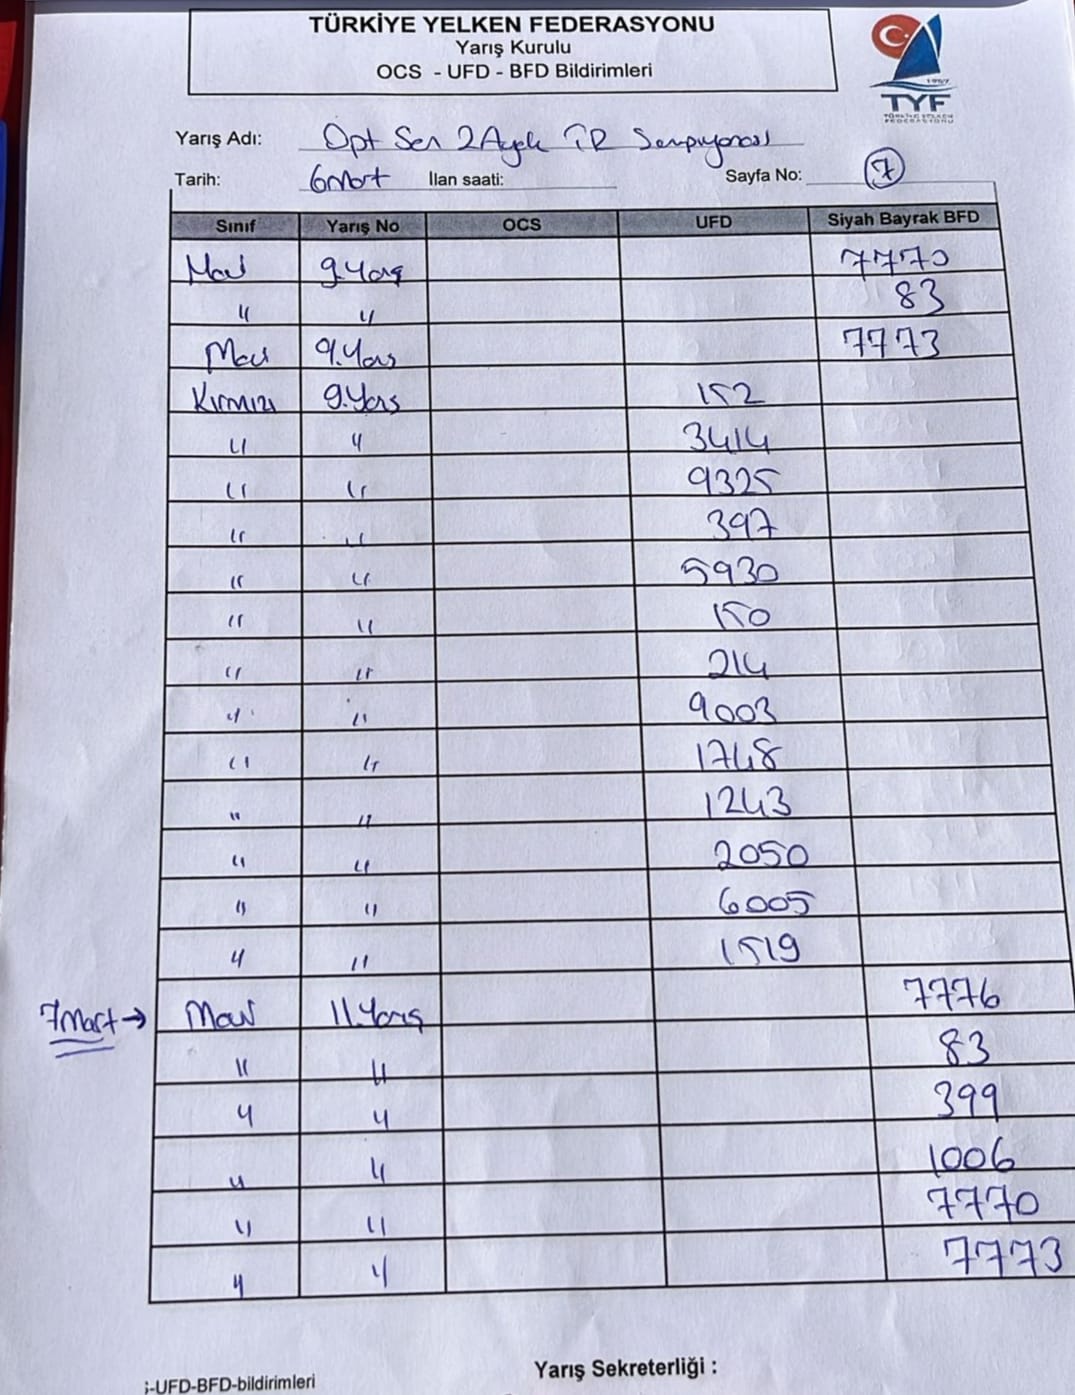 TÜRKİYE YELKEN FEDERASYONU
Yarış Kurulu
OCS - UFD - BFD Bildirimleri
1957
TYF
TÜRKİYE YELKEN
FEDERASYONU
Yarış Adı: Opt Sen TR
Tarih: 6 Mart İlan saati: Sayfa No: 7
Sınıf Yarış No OCS UFD Siyah Bayrak BFD
Mavi 9.Yarış 7770
" " 83
Mavi 9.Yarış 7773
Kırmızı 9.Yarış 152
" " 3414
" " 9325
" " 397
" " 5930
" " 150
" " 214
" " 9003
" " 1748
" " 1243
" " 2050
" " 6005
" " 1519
7 Mart → Mavi 11.Yarış 7776
" " 83
" " 399
" " 1006
" " 7770
" " 7773
Yarış Sekreterliği :
-UFD-BFD-bildirimleri